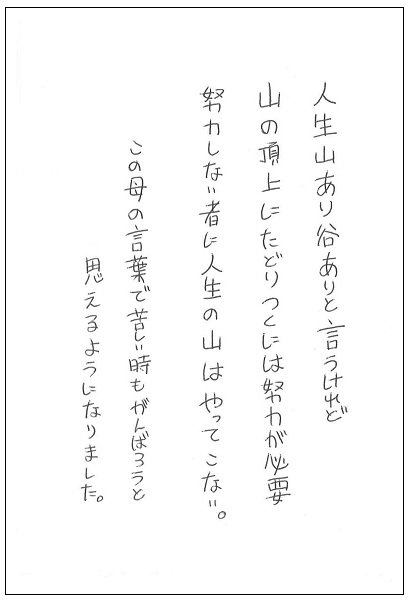 人生山あり谷ありと言うけれど
山の頂上にたどりつくには努力が必要
努力しない者に人生の山はやってこない。
この母の言葉で苦しい時もがんばろうと
思えるようになりました。